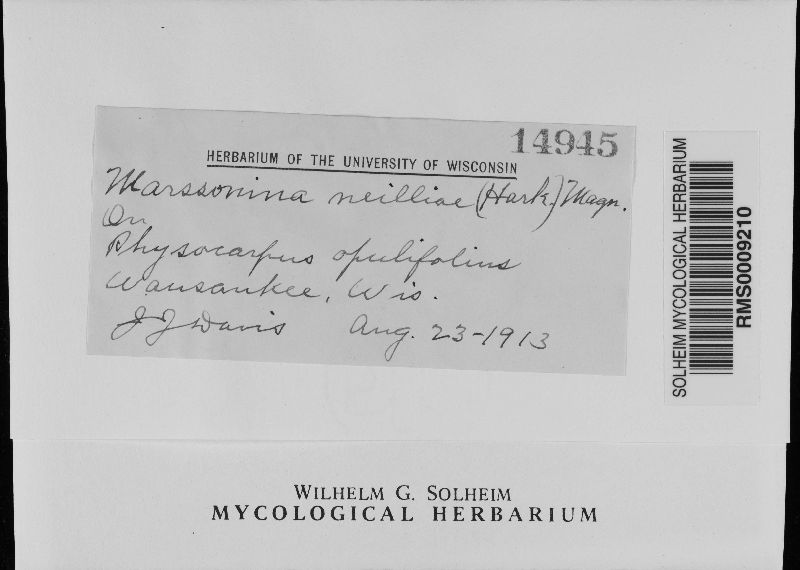 14945
HERBARIUM OF THE UNIVERSITY OF WISCONSIN
Marssonina neilliae (Hark.) Magn.
On
Physocarpus opulifolius
Wausaukee, Wis.
J J Davis Aug. 23-1913
SOLHEIM MYCOLOGICAL HERBARIUM
RMS0009210
WILHELM G. SOLHEIM
MYCOLOGICAL HERBARIUM